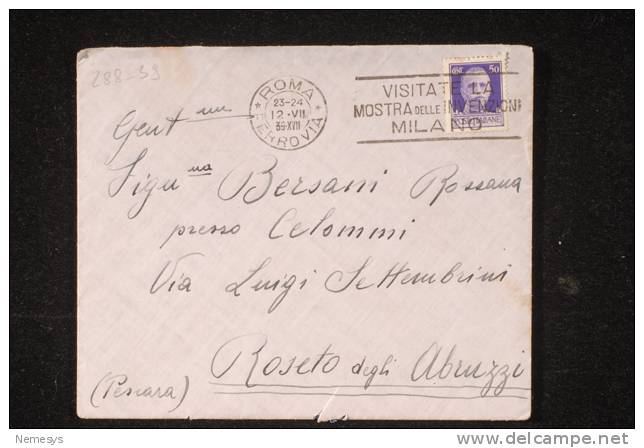 288-39
ROMA
23-24
12·VII
39·XVII
FERROVIA
VISITATE LA
MOSTRA DELLE INVENZIONI
MILANO
50
Gent ma
Sigu na Bersani Rossana
presso Celommi
Via Luigi Settembrini
Roseto degli Abruzzi
(Pescara)
Nemesys
delcampe.net